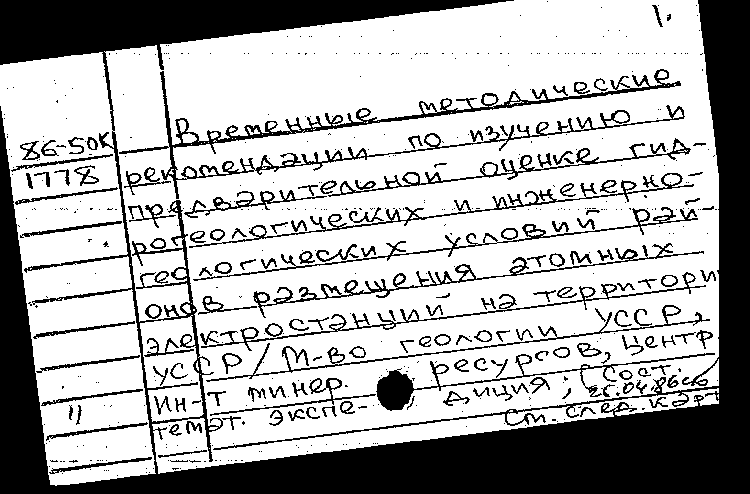 1.
Временные методические
86-50К
1778
рекомендации по изучению и
предварительной оценке гид-
рогеологических и инженерно-
геологических условий рай-
онов размещения атомных
электростанций на территори
УССР/М-во геологии УССР,
Ин-т минер. ресурсов, Центр
темат. экспе- диция; (Сост.
26.04.86
См. след. карт
11